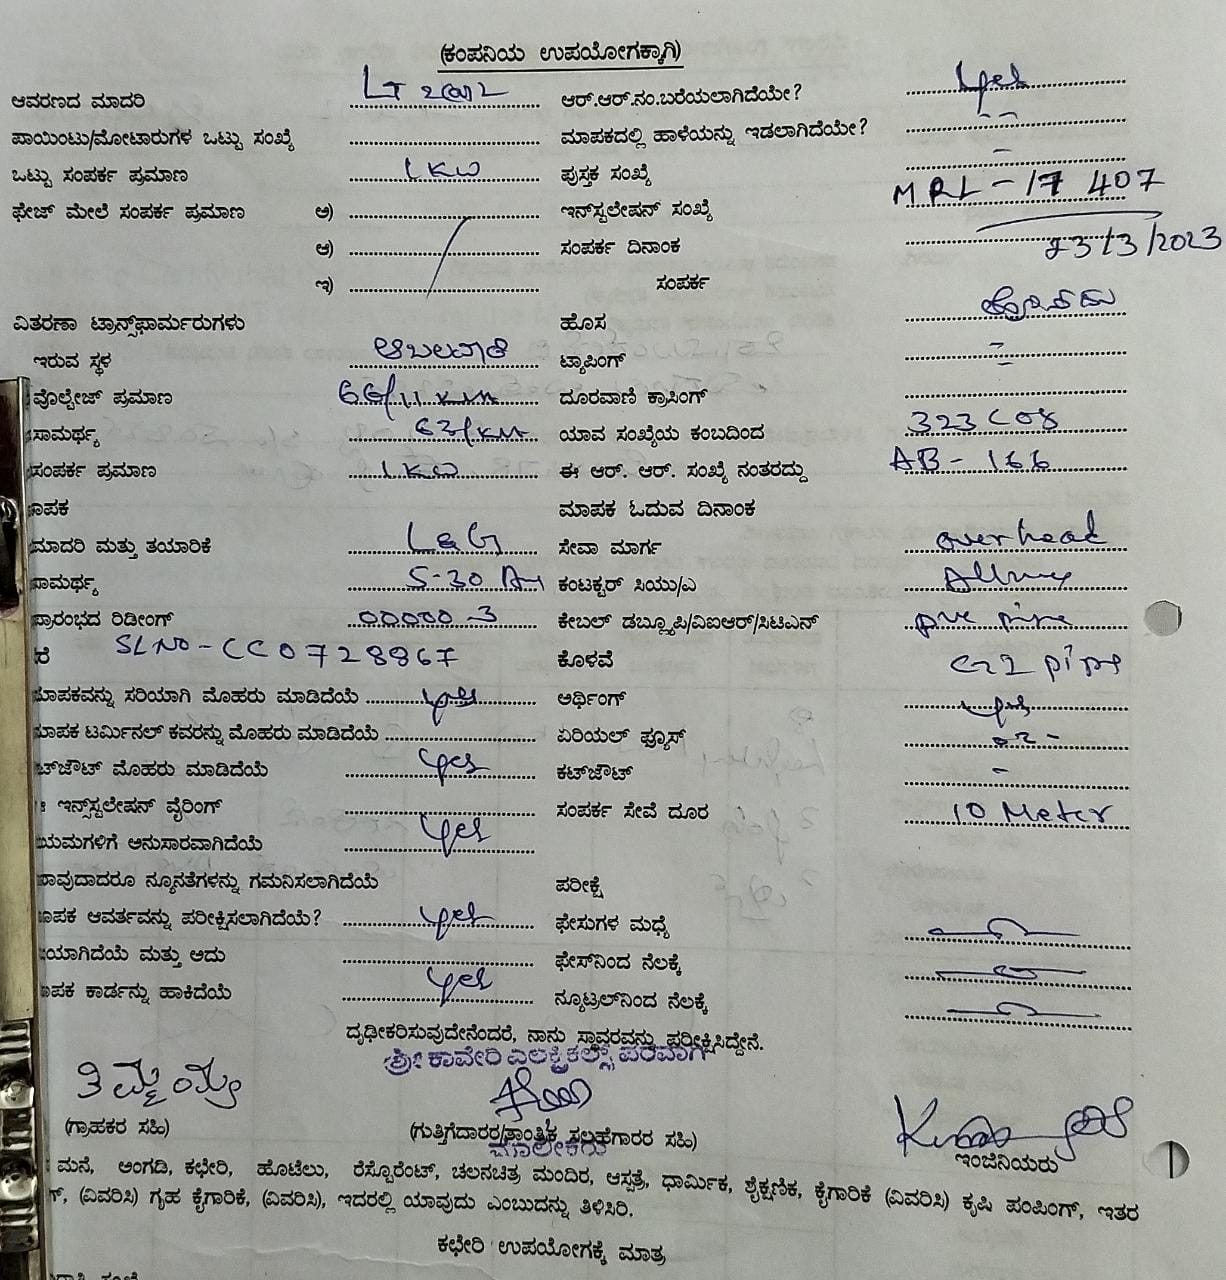 (ಕಂಪನಿಯ ಉಪಯೋಗಕ್ಕಾಗಿ)
ಆವರಣದ ಮಾದರಿ LT ಆರ್.ಆರ್.ನಂ.ಬರೆಯಲಾಗಿದೆಯೇ? yes
ಪಾಯಿಂಟು/ಮೋಟಾರುಗಳ ಒಟ್ಟು ಸಂಖ್ಯೆ ಮಾಪಕದಲ್ಲಿ ಹಾಳೆಯನ್ನು ಇಡಲಾಗಿದೆಯೇ? --
ಒಟ್ಟು ಸಂಪರ್ಕ ಪ್ರಮಾಣ 1 KW ಪುಸ್ತಕ ಸಂಖ್ಯೆ -
ಫೇಜ್ ಮೇಲೆ ಸಂಪರ್ಕ ಪ್ರಮಾಣ ಅ) ಇನ್‌ಸ್ಟಲೇಷನ್ ಸಂಖ್ಯೆ MRL-17407
ಆ) ಸಂಪರ್ಕ ದಿನಾಂಕ 23/3/2023
ಇ) ಸಂಪರ್ಕ
ವಿತರಣಾ ಟ್ರಾನ್ಸ್‌ಫಾರ್ಮರುಗಳು ಹೊಸ
ಇರುವ ಸ್ಥಳ ಆಬಲವಾಡಿ ಟ್ಯಾಪಿಂಗ್
ವೊಲ್ಟೇಜ್ ಪ್ರಮಾಣ 66/11 ದೂರವಾಣಿ ಕ್ರಾಸಿಂಗ್
ಸಾಮರ್ಥ್ಯ 63/ ಯಾವ ಸಂಖ್ಯೆಯ ಕಂಬದಿಂದ 323 C08
ಸಂಪರ್ಕ ಪ್ರಮಾಣ 1 KW ಈ ಆರ್. ಆರ್. ಸಂಖ್ಯೆ ನಂತರದ್ದು AB-166
ಾಪಕ ಮಾಪಕ ಓದುವ ದಿನಾಂಕ
ಮಾದರಿ ಮತ್ತು ತಯಾರಿಕೆ L&G ಸೇವಾ ಮಾರ್ಗ overhead
ಸಾಮರ್ಥ್ಯ 5-30 ಕಂಟಕ್ಟರ್ ಸಿಯು/ಎ
ಪ್ರಾರಂಭದ ರಿಡೀಂಗ್ 00000.3 ಕೇಬಲ್ ಡಬ್ಲ್ಯೂಪಿ/ವಿಐಆರ್/ಸಿಟಿಎಸ್ pvc
ರೆ SLNO-CC0728867 ಕೊಳವೆ pipe
ಮಾಪಕವನ್ನು ಸರಿಯಾಗಿ ಮೊಹರು ಮಾಡಿದೆಯೆ yes ಅರ್ಥಿಂಗ್ yes
ಮಾಪಕ ಟರ್ಮಿನಲ್ ಕವರನ್ನು ಮೊಹರು ಮಾಡಿದೆಯೆ ಏರಿಯಲ್ ಫ್ಯೂಸ್
ಟ್‌ಔಟ್ ಮೊಹರು ಮಾಡಿದೆಯೆ yes ಕಟ್‌ಔಟ್ -
ಇನ್‌ಸ್ಟಲೇಷನ್ ವೈರಿಂಗ್ ಸಂಪರ್ಕ ಸೇವೆ ದೂರ 10 Meter
ಯಮಗಳಿಗೆ ಅನುಸಾರವಾಗಿದೆಯೆ yes
ಾವುದಾದರೂ ನ್ಯೂನತೆಗಳನ್ನು ಗಮನಿಸಲಾಗಿದೆಯೆ ಪರೀಕ್ಷೆ
ಾಪಕ ಆವರ್ತವನ್ನು ಪರೀಕ್ಷಿಸಲಾಗಿದೆಯೆ? yes ಫೇಸುಗಳ ಮಧ್ಯೆ
ಯಾಗಿದೆಯೆ ಮತ್ತು ಅದು ಫೇಸ್‌ನಿಂದ ನೆಲಕ್ಕೆ
ಾಪಕ ಕಾರ್ಡನ್ನು ಹಾಕಿದೆಯೆ yes ನ್ಯೂಟ್ರಲ್‌ನಿಂದ ನೆಲಕ್ಕೆ
ದೃಢೀಕರಿಸುವುದೇನೆಂದರೆ, ನಾನು ಸ್ಥಾವರವನ್ನು ಪರೀಕ್ಷಿಸಿದ್ದೇನೆ.
ಶ್ರೀ ಕಾವೇರಿ ಎಲೆಕ್ಟ್ರಿಕಲ್ಸ್ ಪರವಾಗಿ
ತಿಮ್ಮಯ್ಯ
(ಗ್ರಾಹಕರ ಸಹಿ) (ಗುತ್ತಿಗೆದಾರರ/ತಾಂತ್ರಿಕ ಸಲಹೆಗಾರರ ಸಹಿ)
ಮಾಲೀಕರು
ಇಂಜಿನಿಯರು
ಮನೆ, ಅಂಗಡಿ, ಕಛೇರಿ, ಹೊಟೆಲು, ರೆಸ್ಟೊರೆಂಟ್, ಚಲನಚಿತ್ರ ಮಂದಿರ, ಆಸ್ಪತ್ರೆ, ಧಾರ್ಮಿಕ, ಶೈಕ್ಷಣಿಕ, ಕೈಗಾರಿಕೆ (ವಿವರಿಸಿ) ಕೃಷಿ ಪಂಪಿಂಗ್, ಇತರ
ಗ್, (ವಿವರಿಸಿ) ಗೃಹ ಕೈಗಾರಿಕೆ, (ವಿವರಿಸಿ), ಇದರಲ್ಲಿ ಯಾವುದು ಎಂಬುದನ್ನು ತಿಳಿಸಿರಿ.
ಕಛೇರಿ ಉಪಯೋಗಕ್ಕೆ ಮಾತ್ರ